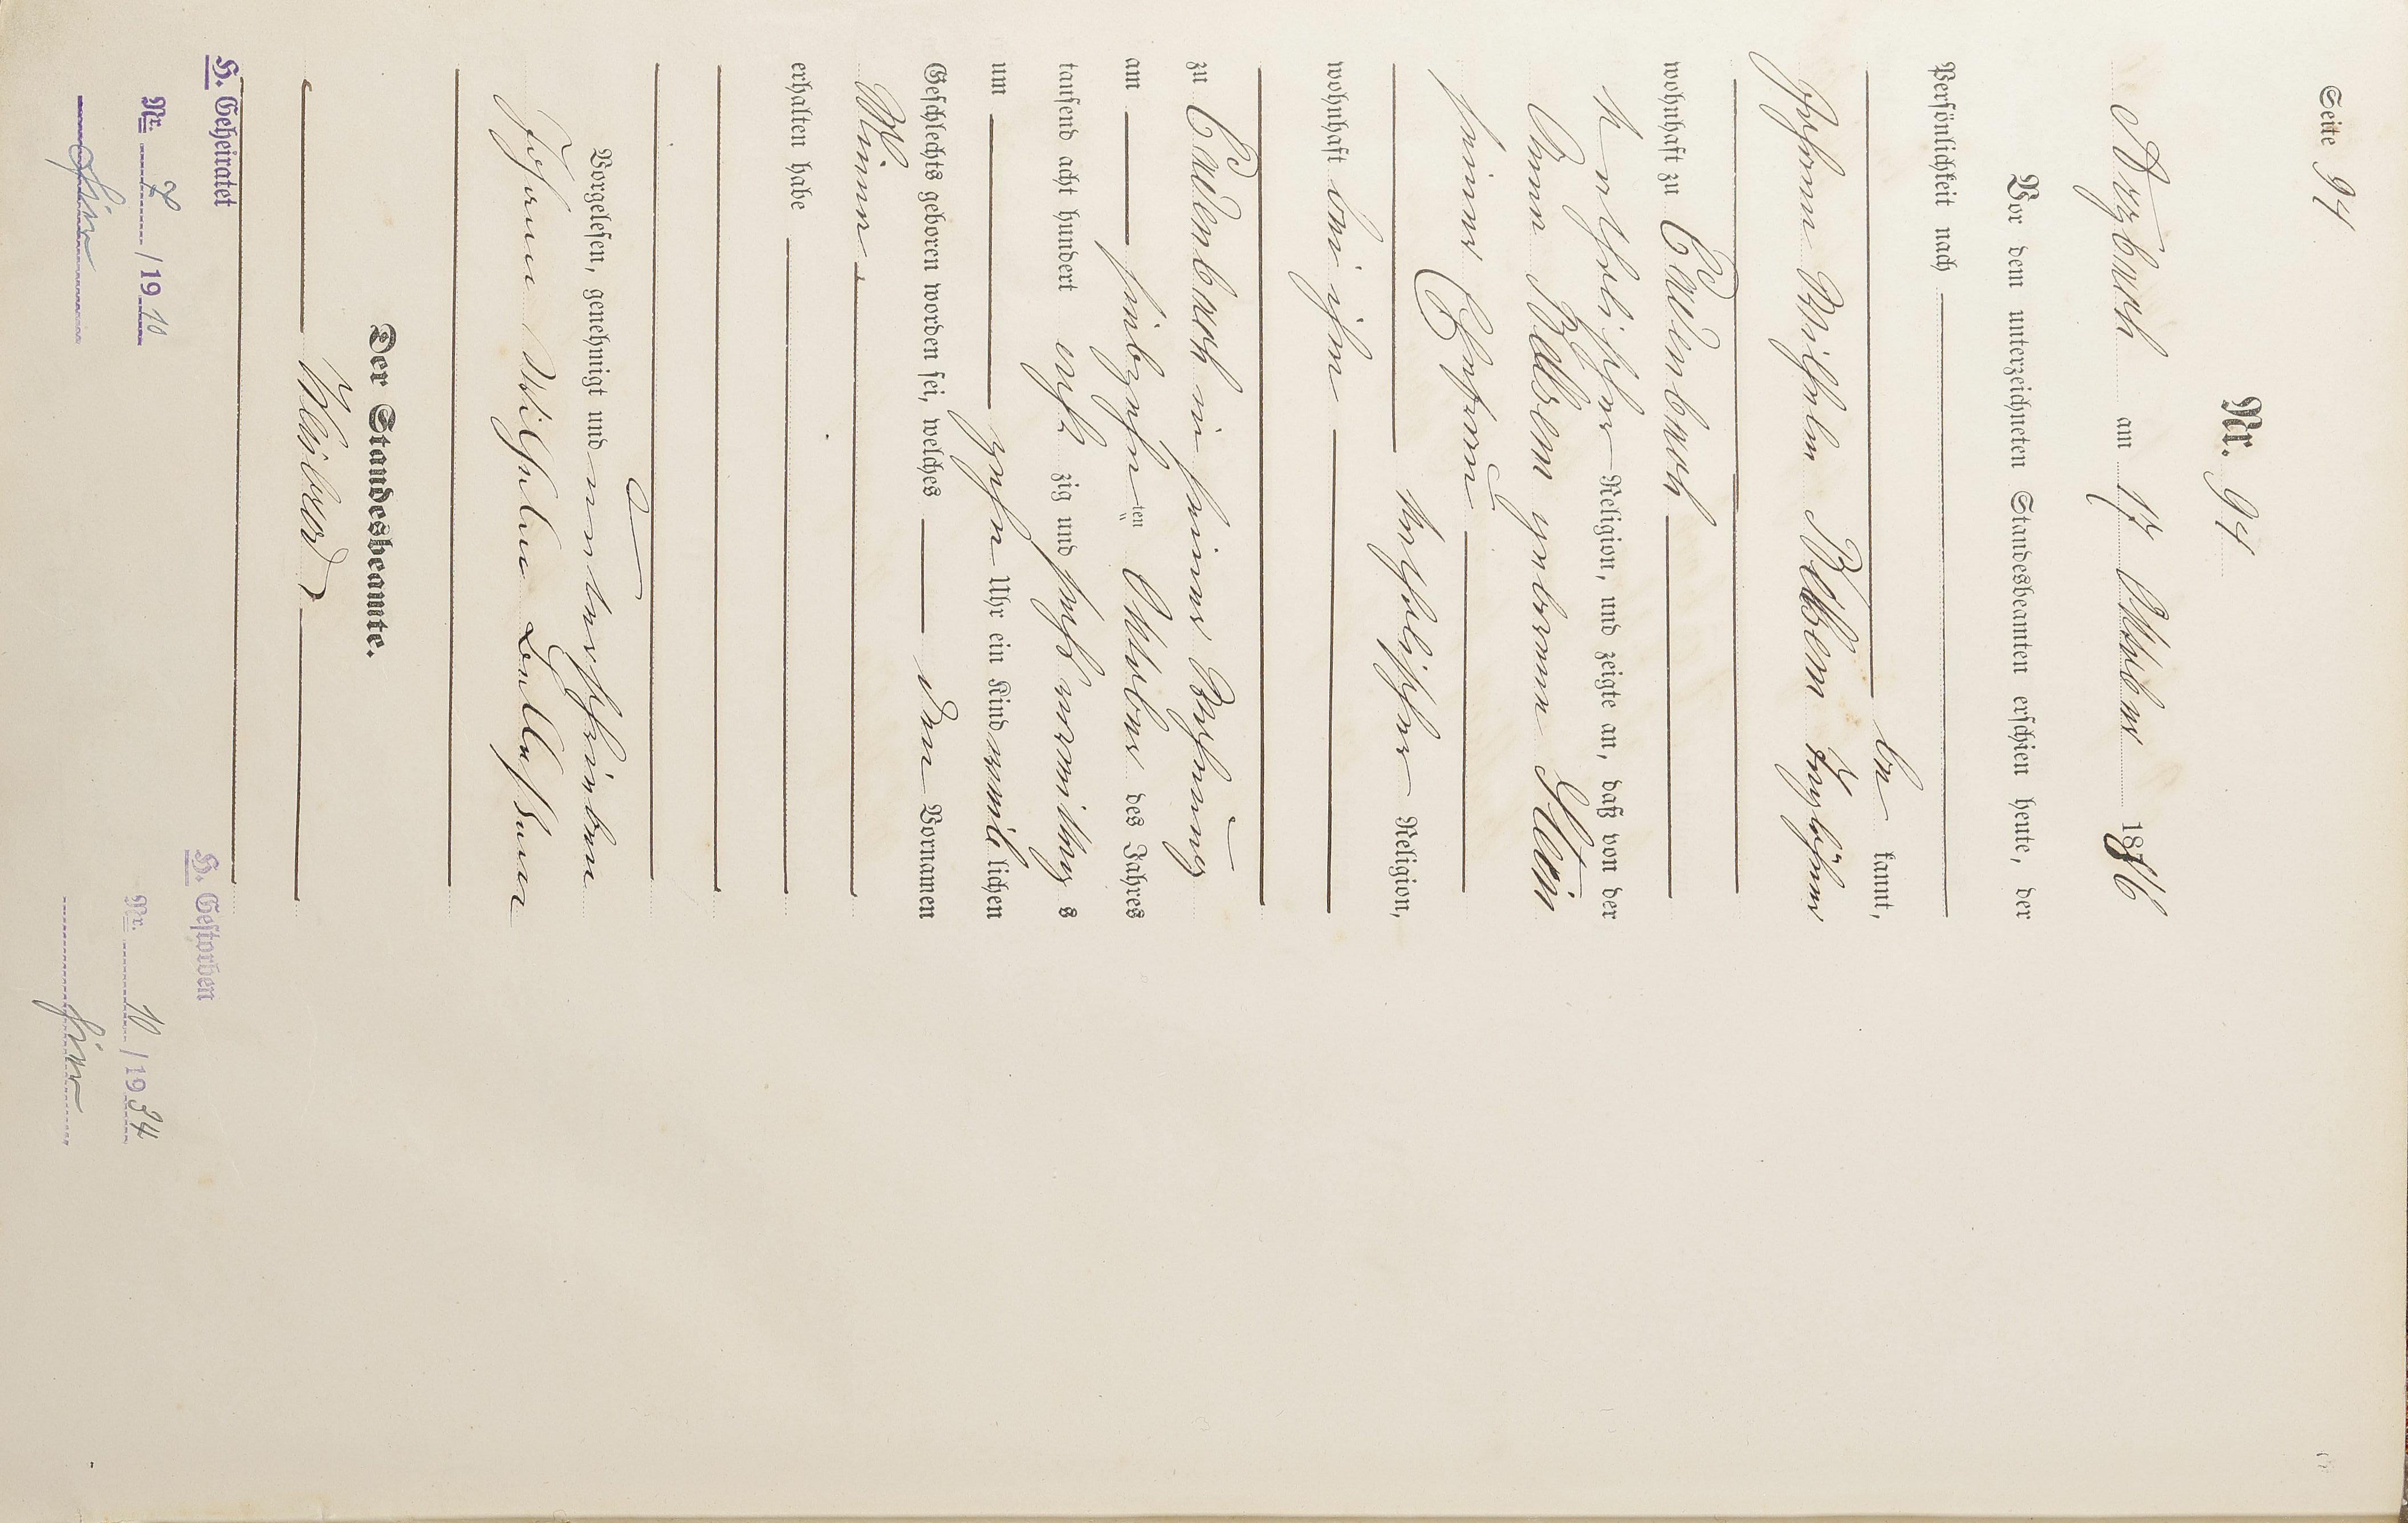 Seite 94
Nr. 94
Arzbach am 17 Oktober 1886
Vor dem unterzeichneten Standesbeamten erschien heute, der
Persönlichkeit nach
be kannt,
Johann Wilhelm Taglöhner
wohnhaft zu Cadenbach
katholischer Religion, und zeigte an, daß von der
Anna geborene Stein
seiner Ehefrau
katholischer Religion,
wohnhaft bei ihm
zu Cadenbach in seiner Behausung
am siebzehn ten Oktober des Jahres
tausend acht hundert acht zig und sechs vormittag s
um zehn Uhr ein Kind lichen
Geschlechts geboren worden sei, welches den Vornamen
Minna
erhalten habe
Vorgelesen, genehmigt und unterschrieben
Johann Wilhelm
Der Standesbeamte.
H. Geheiratet
Nr. 2 / 1910
hier
H. Gestorben
Nr. 10 / 1934
hier